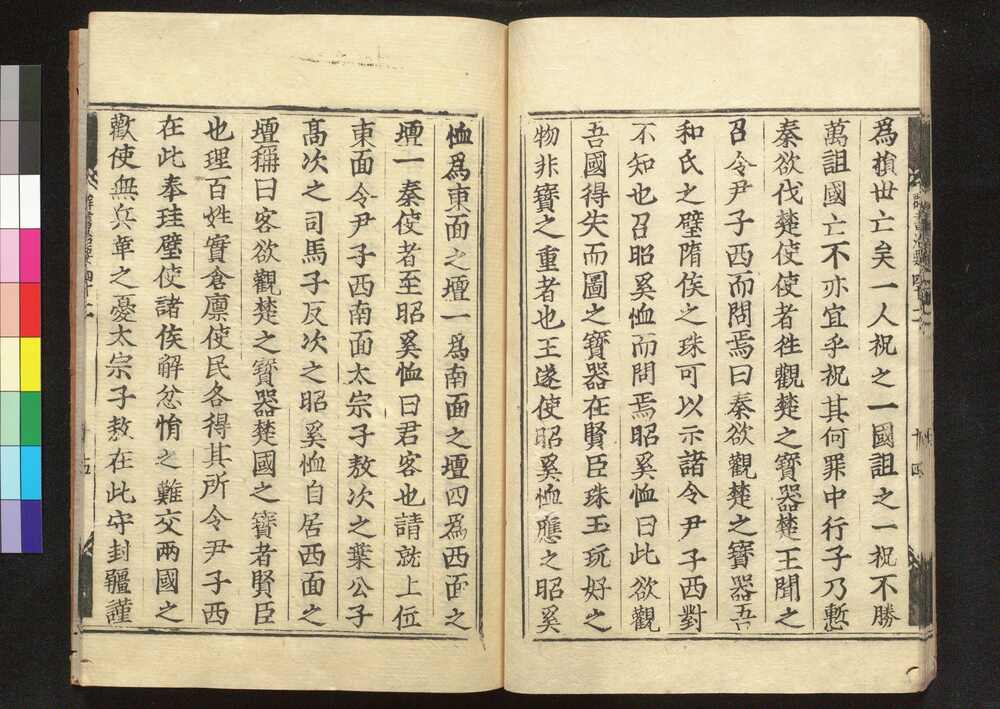 為損世亡矣一人祝之一國詛之一祝不勝
萬詛國亡不亦宜乎祝其何罪中行子乃慙
秦欲伐楚使使者徃觀楚之寶器楚王聞之
召令尹子西而問焉曰秦欲觀楚之寶器吾
和氏之璧隋侯之珠可以示諸令尹子西對
不知也召昭奚恤而問焉昭奚恤曰此欲觀
吾國得失而圖之寶器在賢臣珠玉玩好之
物非寶之重者也王遂使昭奚恤應之昭奚
恤為東面之壇一為南面之壇四為西面之
壇一秦使者至昭奚恤曰君客也請就上位
東面令尹子西南面太宗子敖次之葉公子
髙次之司馬子反次之昭奚恤自居西面之
壇稱曰客欲觀楚之寶器楚國之寶者賢臣
也理百姓實倉廪使民各得其所令尹子西
在此奉珪璧使諸侯解忿悁之難交兩國之
歡使無兵革之憂太宗子敖在此守封疆謹